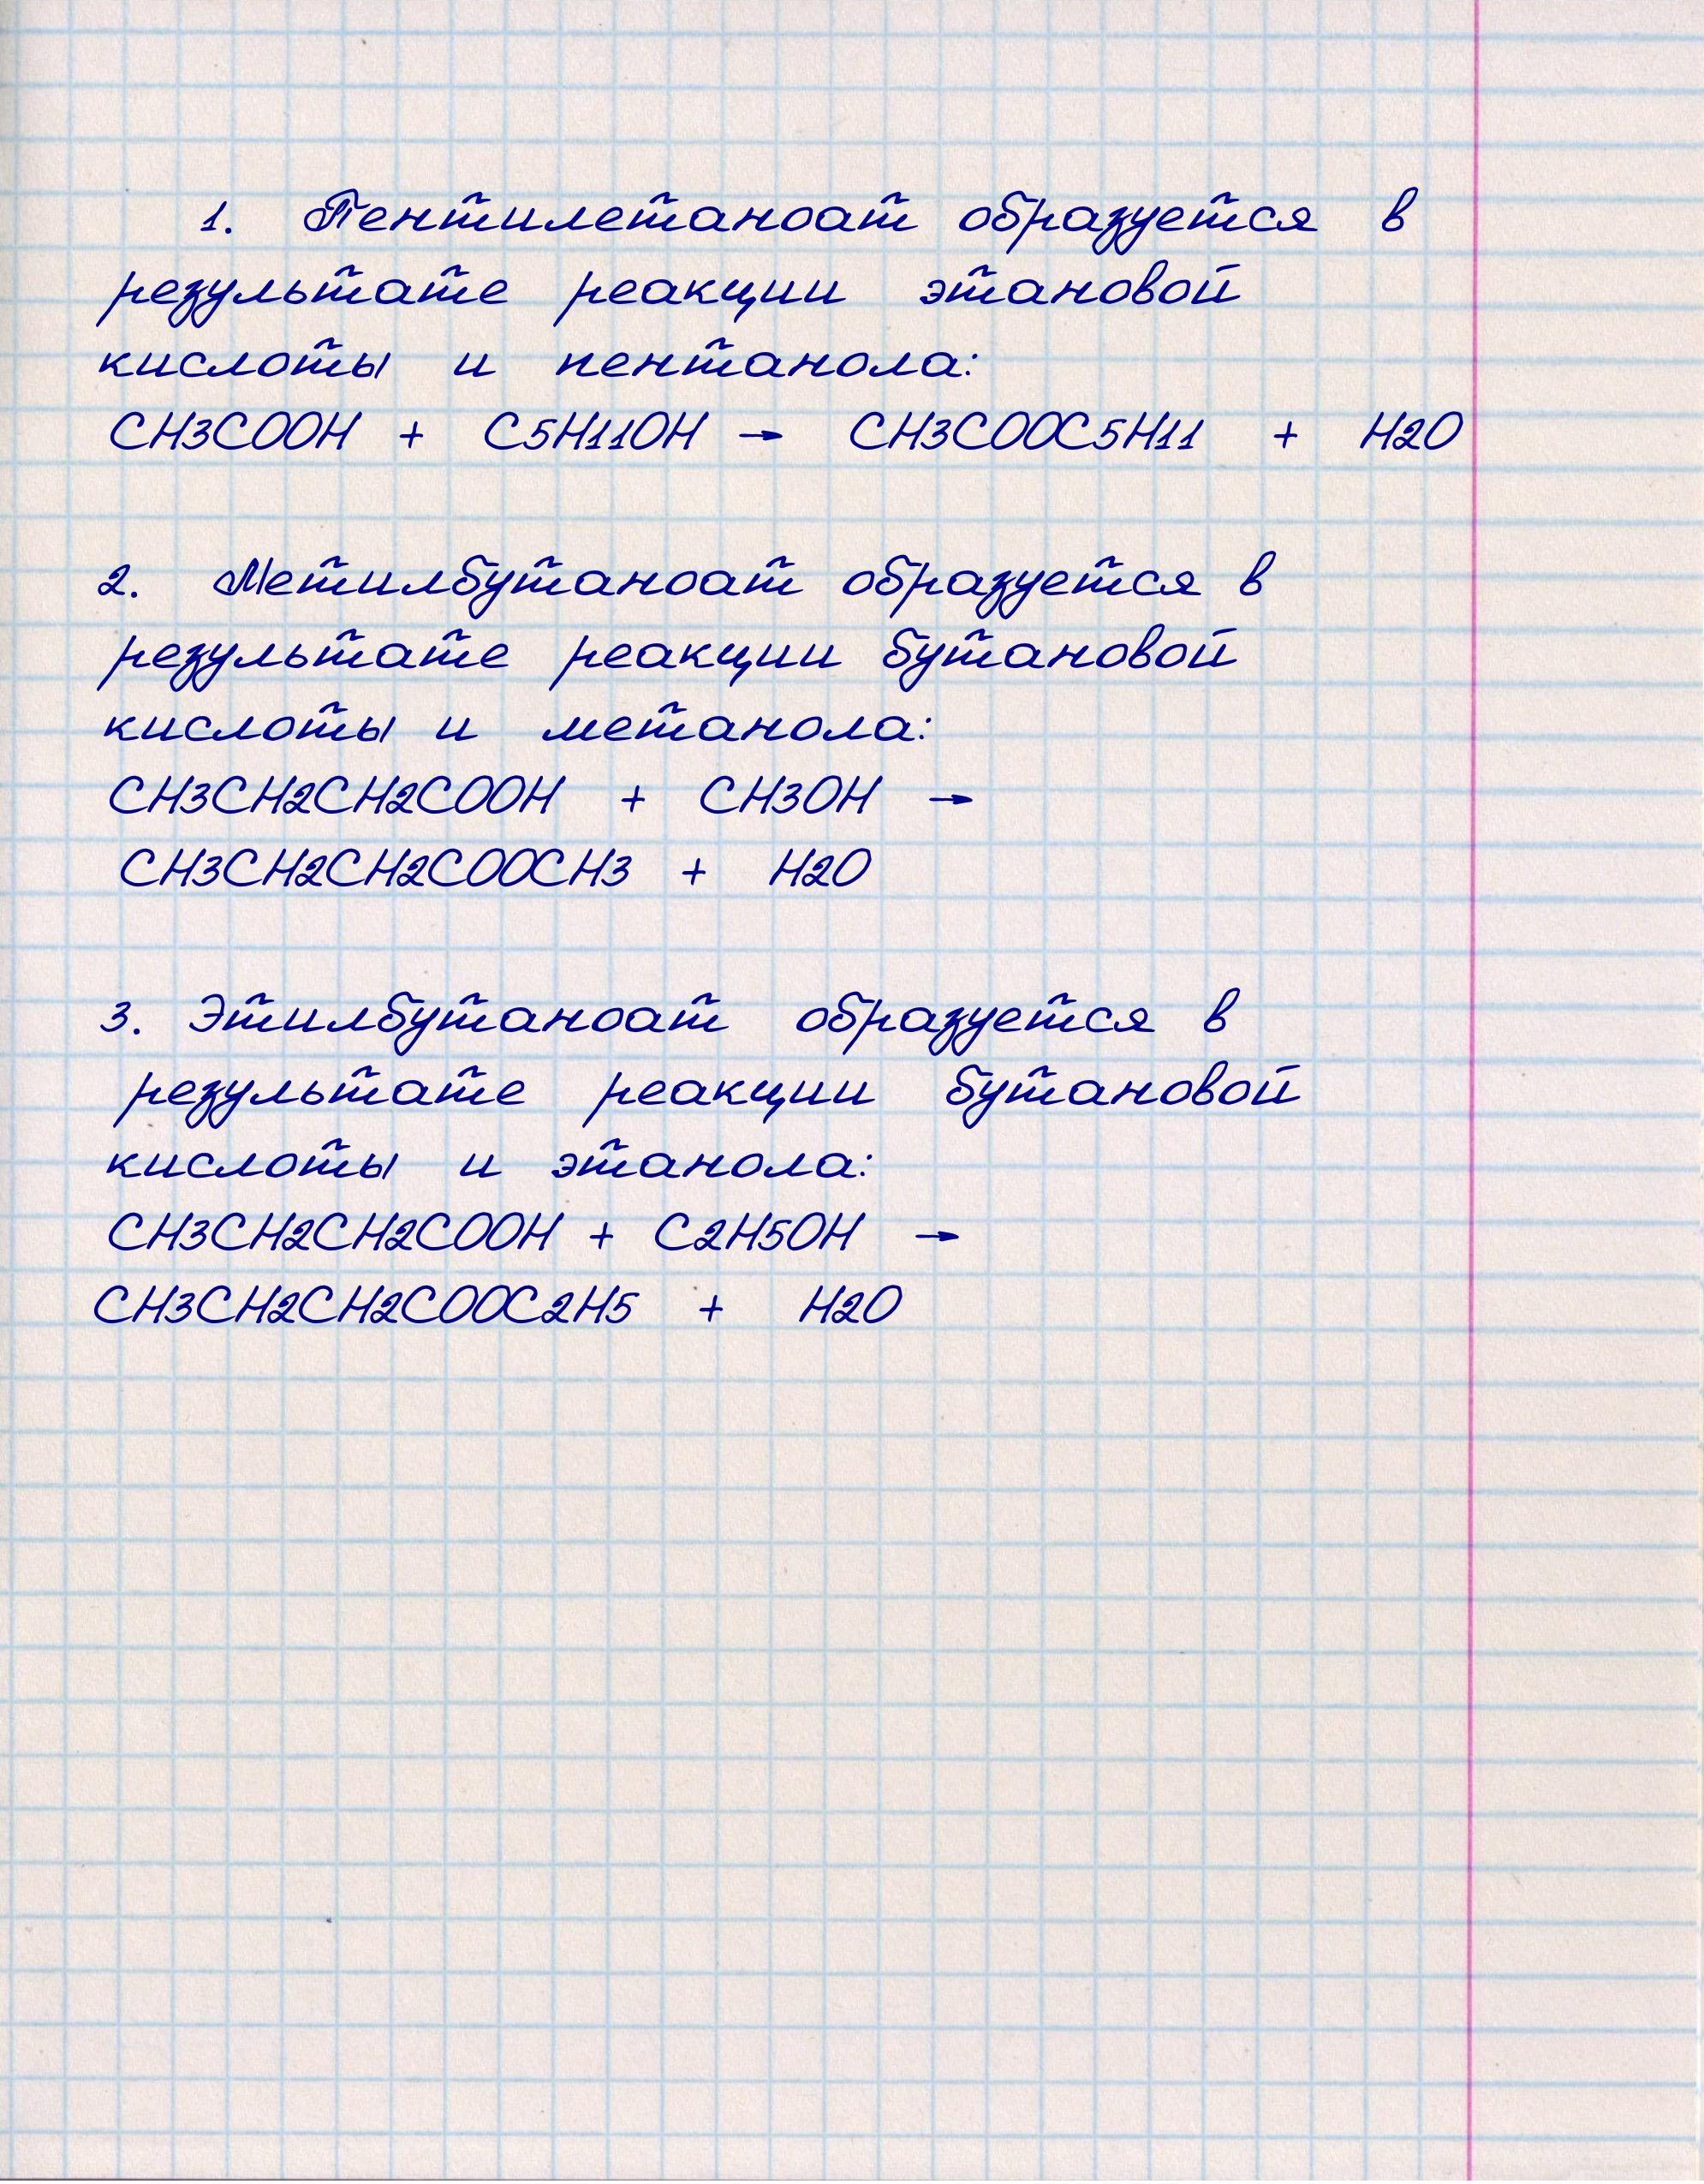 1. Пентилетаноат образуется в
результате реакции этановой
кислоты и пентанола:
CH3COOH + C5H11OH → CH3COOC5H11 + H2O
2. Метилбутаноат образуется в
результате реакции бутановой
кислоты и метанола:
CH3CH2CH2COOH + CH3OH →
CH3CH2CH2COOCH3 + H2O
3. Этилбутаноат образуется в
результате реакции бутановой
кислоты и этанола:
CH3CH2CH2COOH + C2H5OH →
CH3CH2CH2COOC2H5 + H2O